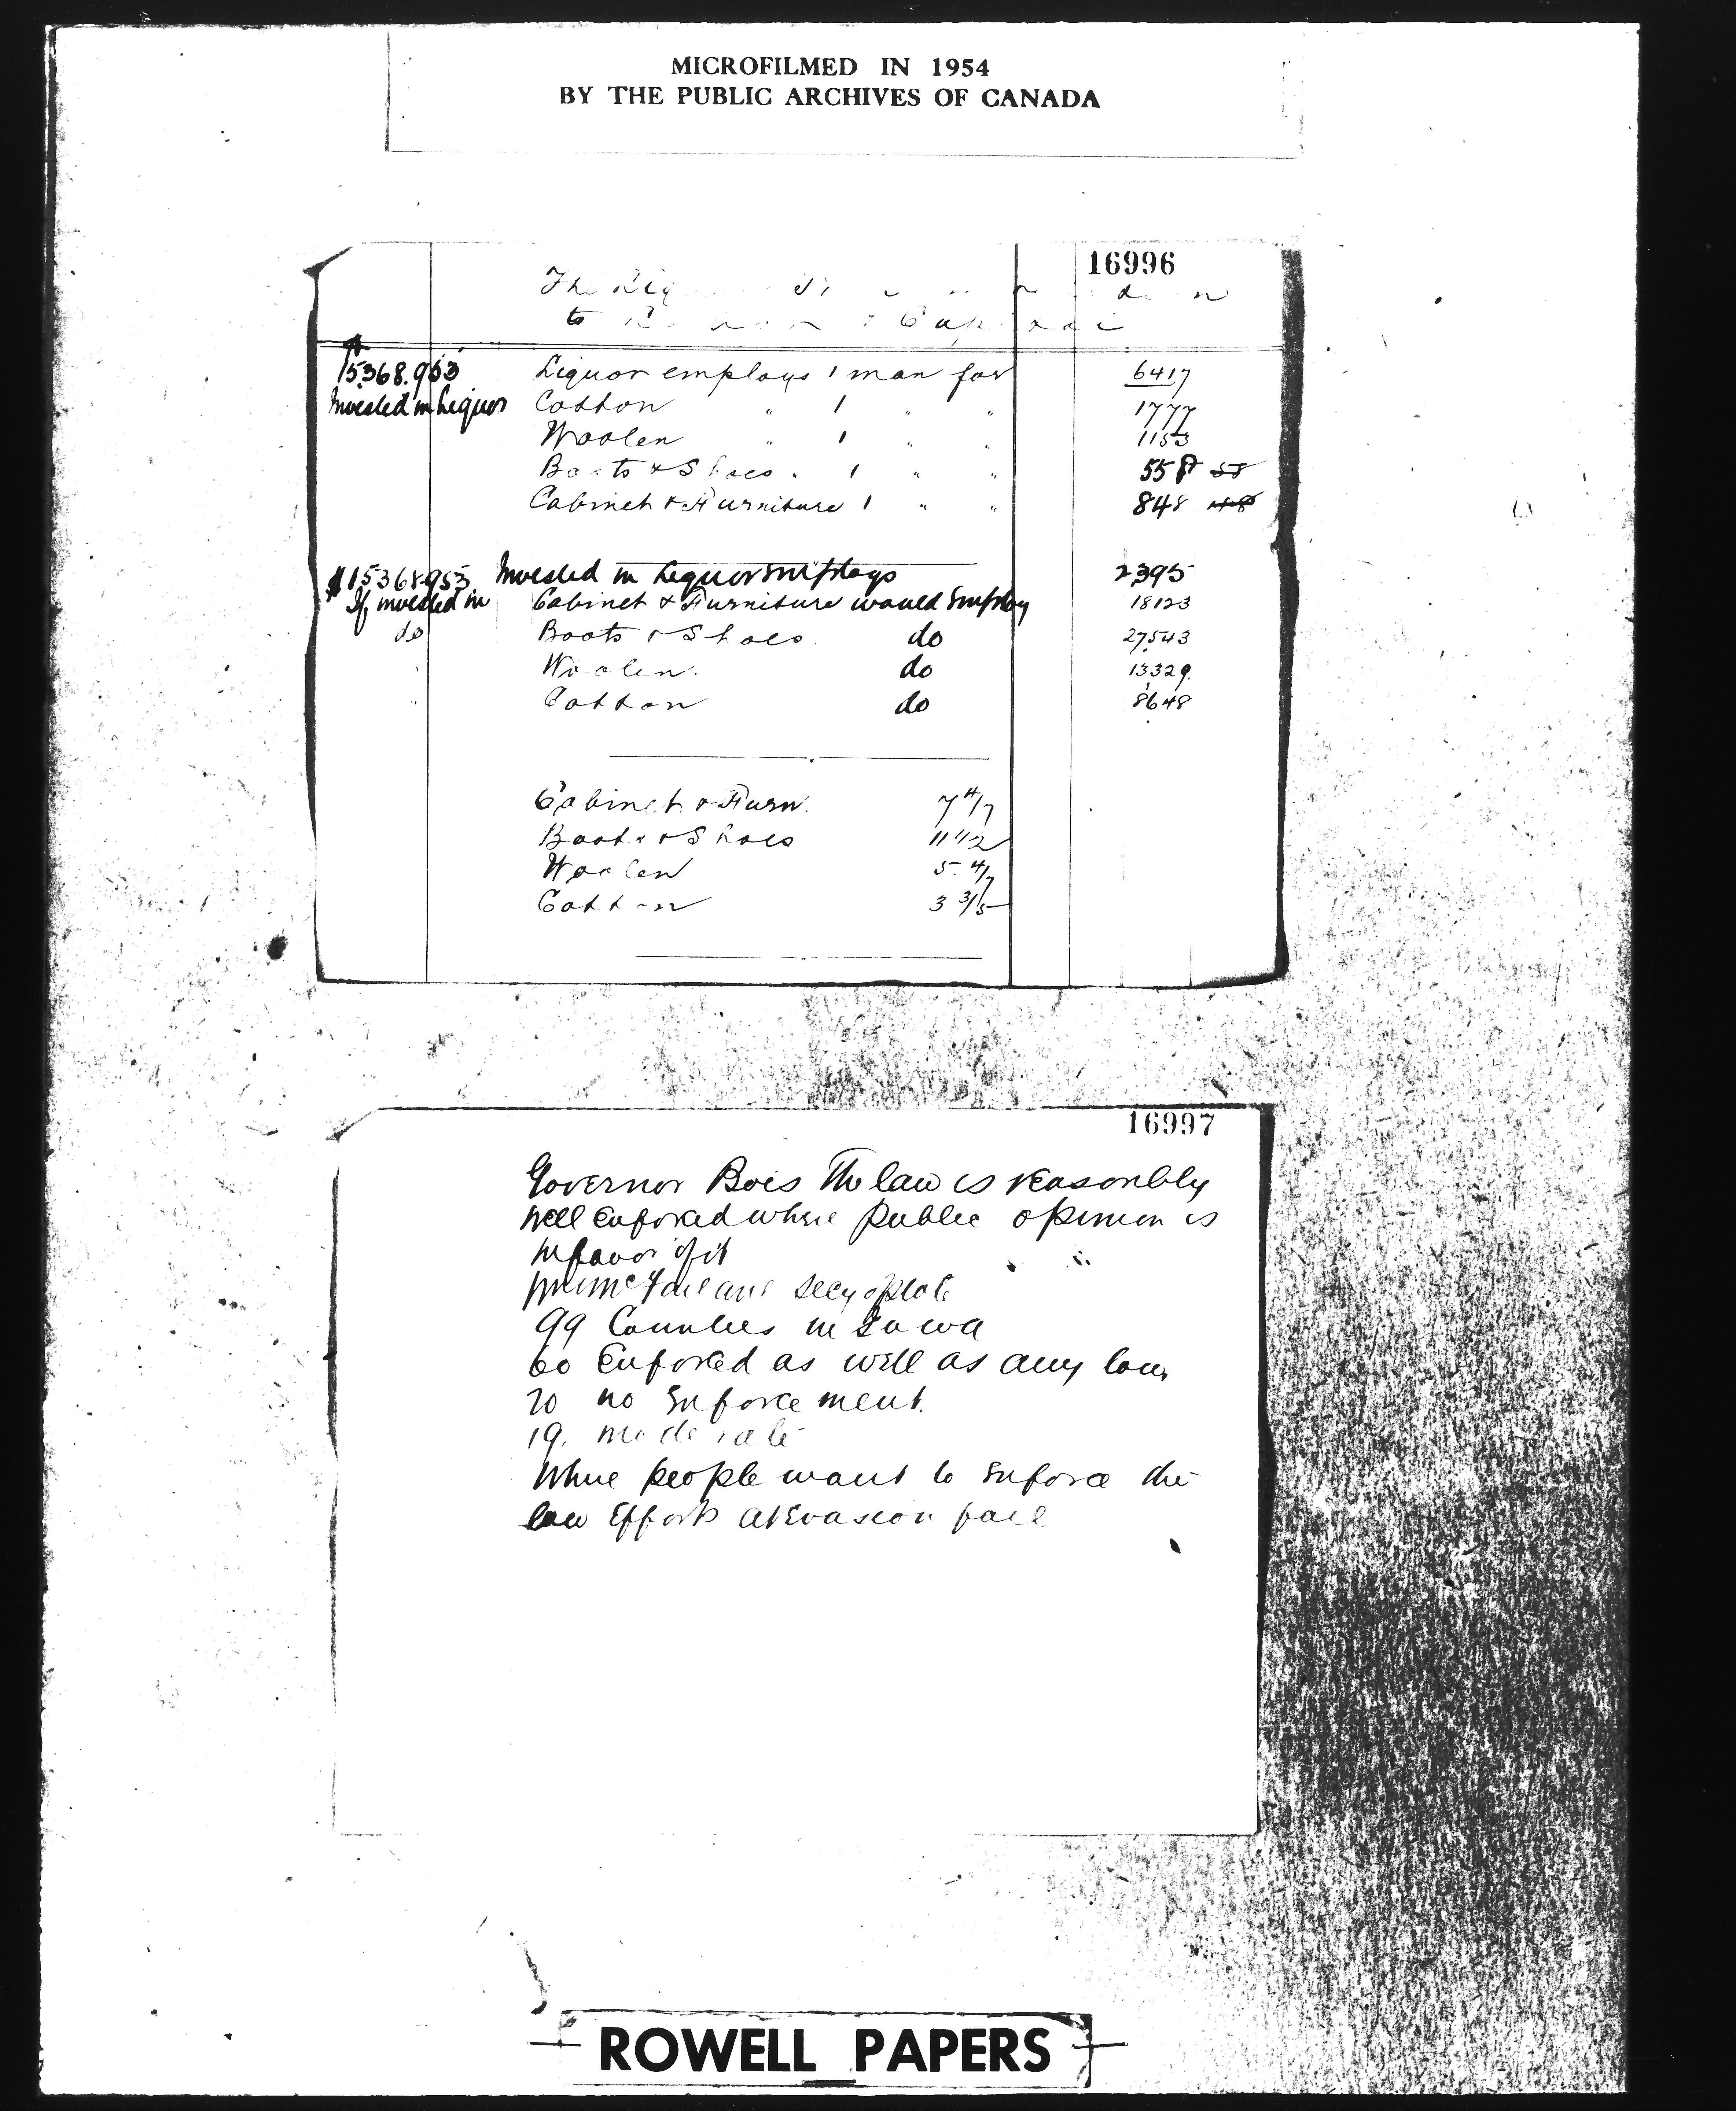 MICROFILMED IN 1954
BY THE PUBLIC ARCHIVES OF CANADA
16996
The
to
$
15,368.953 Liquor employs 1 man for 6417
Invested in Liquor Cotton " 1 " " 1777
Woolen " 1 " " 1153
Boots & Shoes " 1 " " 558
Cabinet & Furniture 1 " " 848
$15368953 Invested in Liquor Employs 2395
If invested in Cabinet & Furniture would Employ 18123
do Boots & Shoes do 27543
Woolen do 13329
Cotton do 8648
Cabinet & Furn. 7 4/7
Boots & Shoes 11 1/2
Woolen 5 4/7
Cotton 3 3/5
16997
Governor Bois The law is reasonbly
well Enforced where public opinion is
in favor of it
McFarlane Secy of State
99 Counties in Iowa
60 Enforced as well as any law
20 no Enforcement.
19. moderate
Where people want to Enforce the
law Efforts at Evasion fail
ROWELL PAPERS